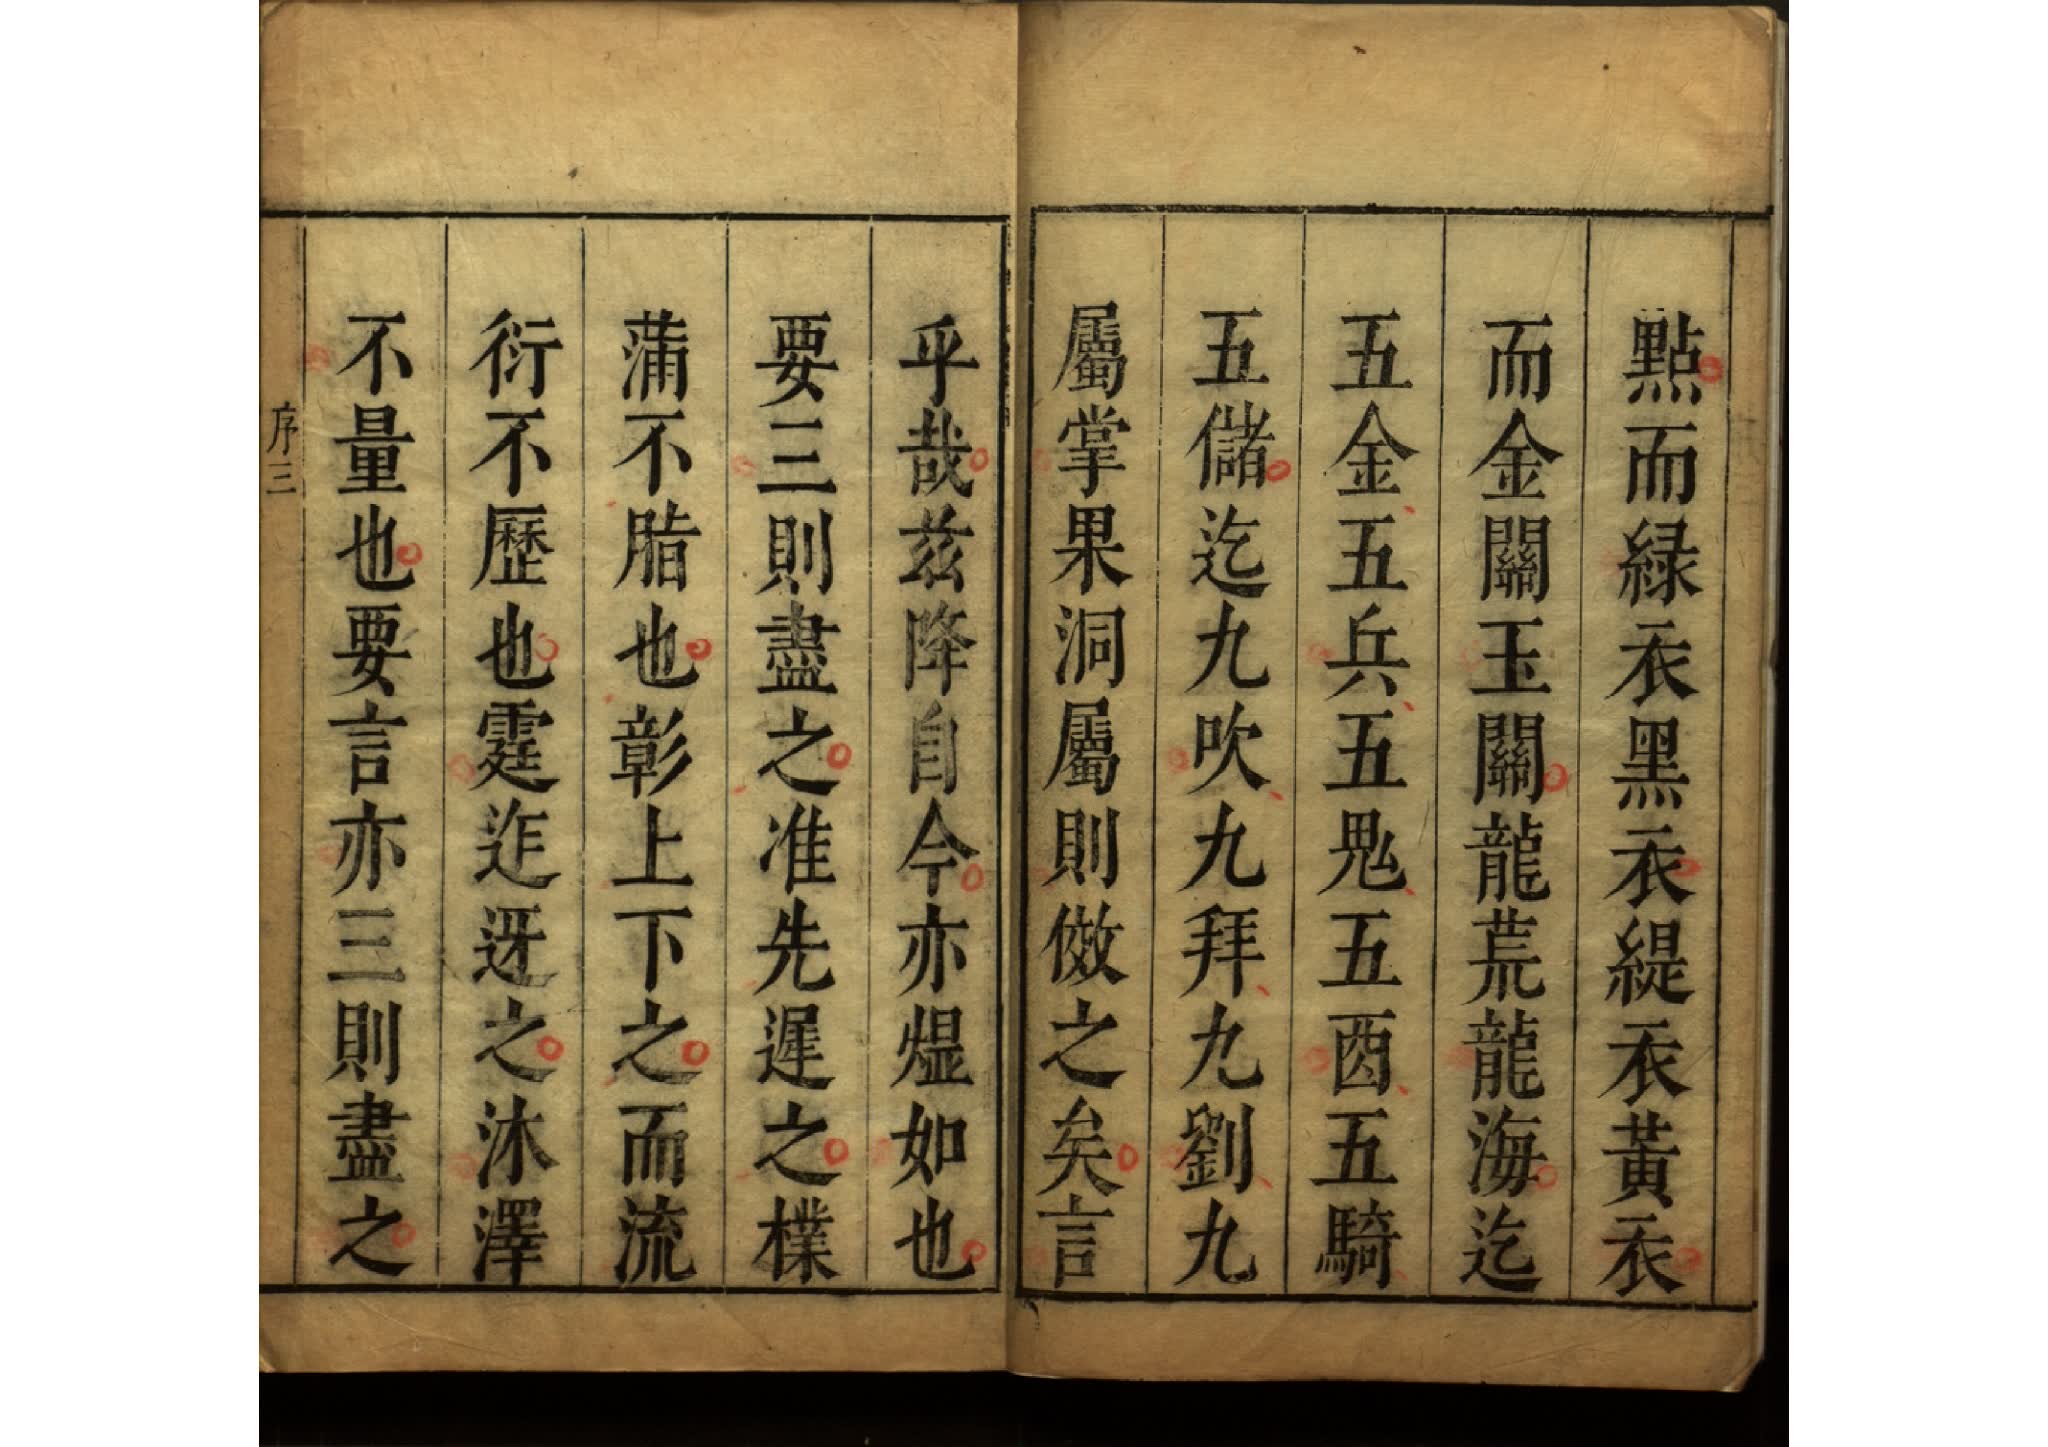 點而緑衣黑衣緹衣黃衣
而金關玉關龍荒龍海迄
五金五兵五鬼五酉五騎
五儲迄九吹九拜九劉九
屬掌果洞屬則倣之矣言
乎哉茲降自今亦熅如也
要三則盡之准先遲之樸
蒲不脂也彰上下之而流
衍不歷也霆迮迓之沐澤
不量也要言亦三則盡之
序三